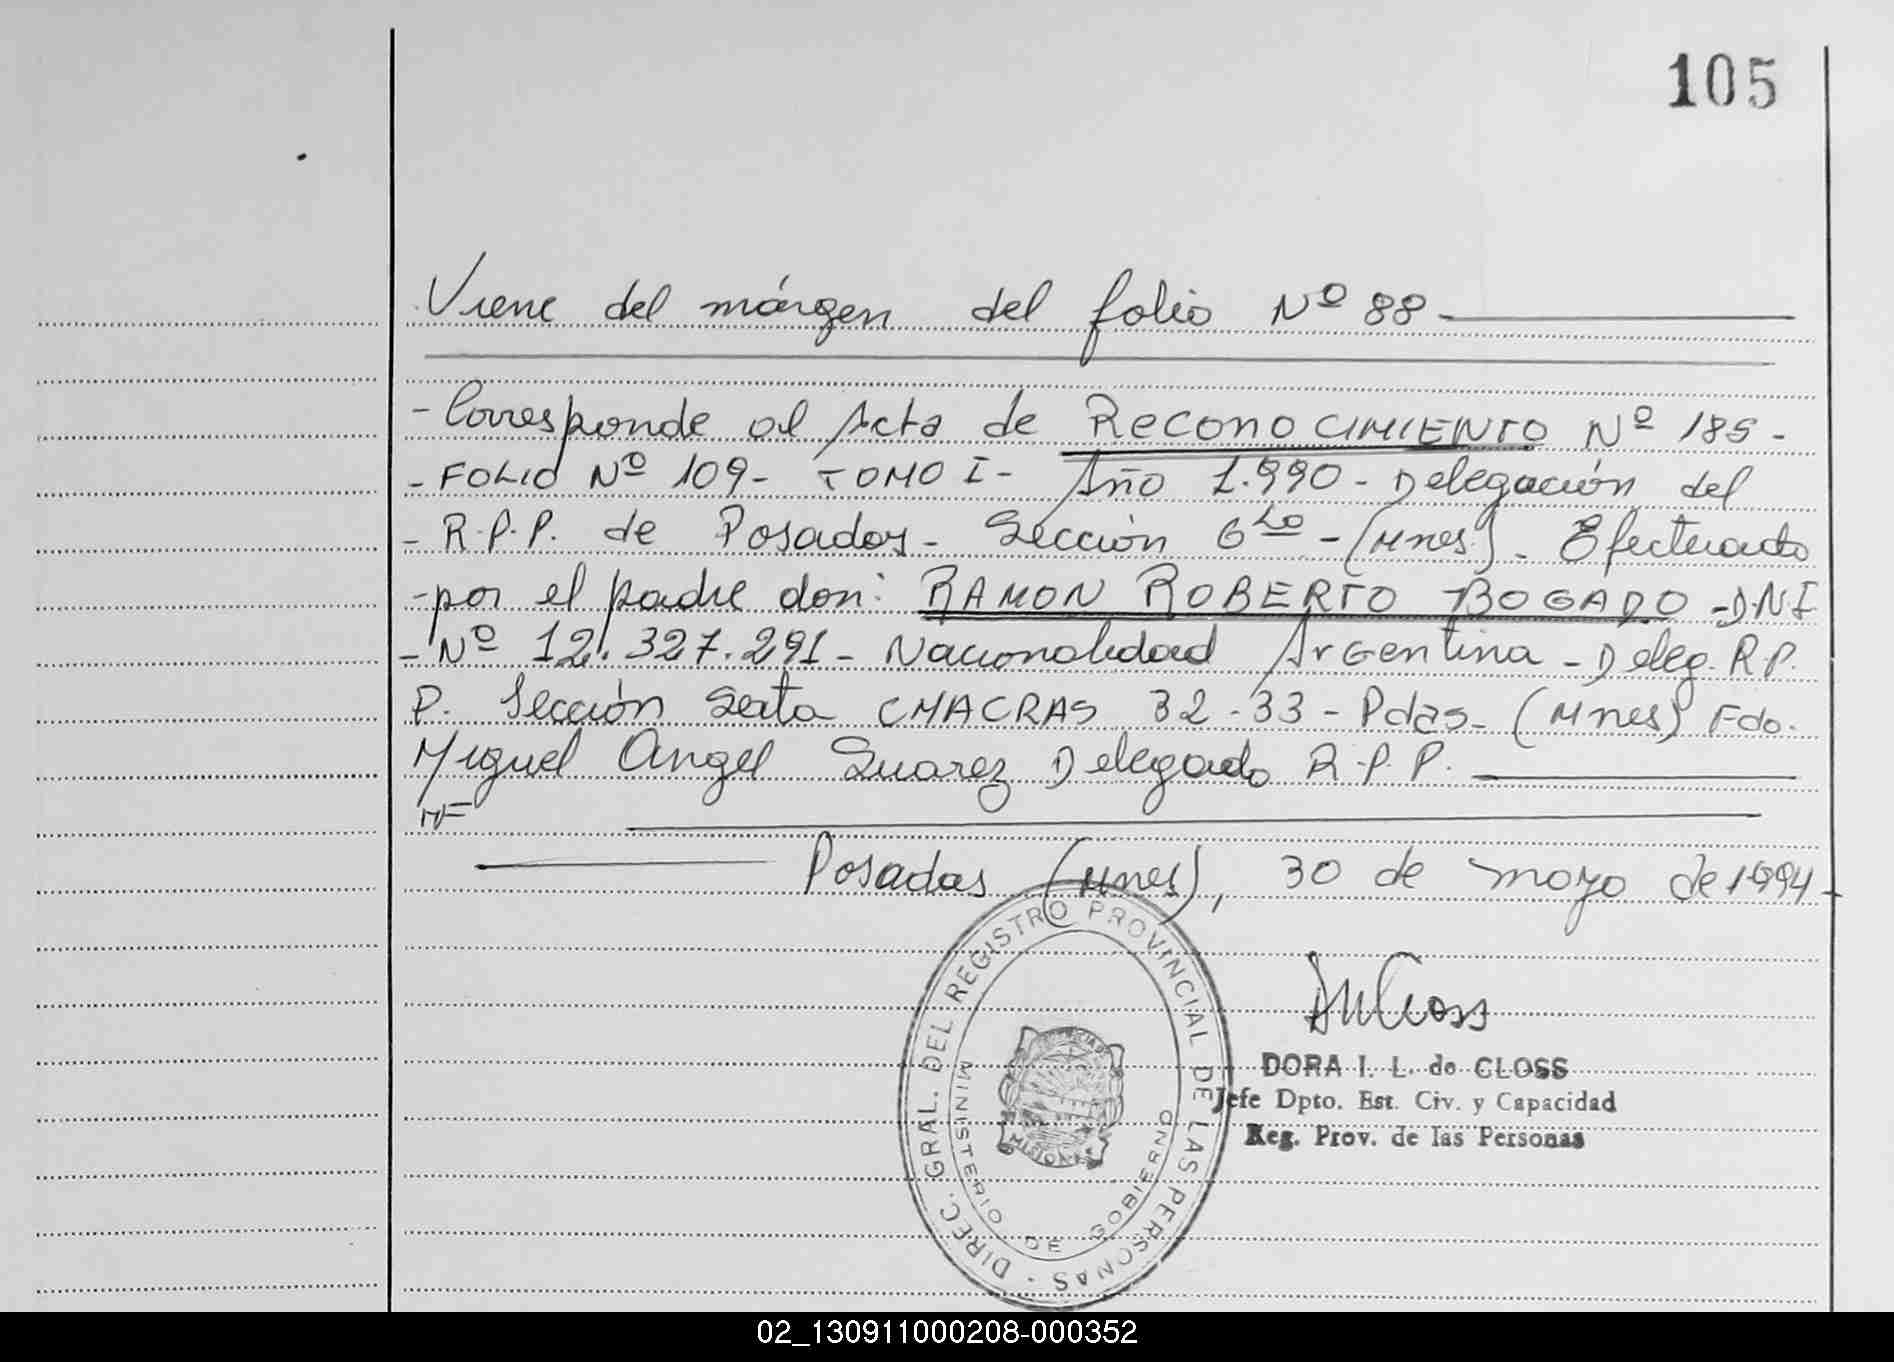 105
Viene del márgen del folio Nº 88
- Corresponde al Acta de RECONOCIMIENTO Nº 185 -
- FOLIO Nº 109 - TOMO I - Año 1.990 - Delegación del
- R.P.P. de Posadas - Sección 6ta - (Mnes) - Efectuado
- por el padre don: RAMON ROBERTO BOGADO - DNI
- Nº 12.327.291 - Nacionalidad Argentina - Deleg. R.P.
P. Sección Sexta CHACRAS 32-33 - Pdas - (Mnes) Fdo.
Miguel Angel Suarez Delegado R.P.P.
Posadas (Mnes), 30 de mayo de 1994 -
DIREC. GRAL. DEL REGISTRO PROVINCIAL DE LAS PERSONAS
MINISTERIO DE GOBIERNO
MISIONES
DORA I. L. de CLOSS
Jefe Dpto. Est. Civ. y Capacidad
Reg. Prov. de las Personas
02_130911000208-000352